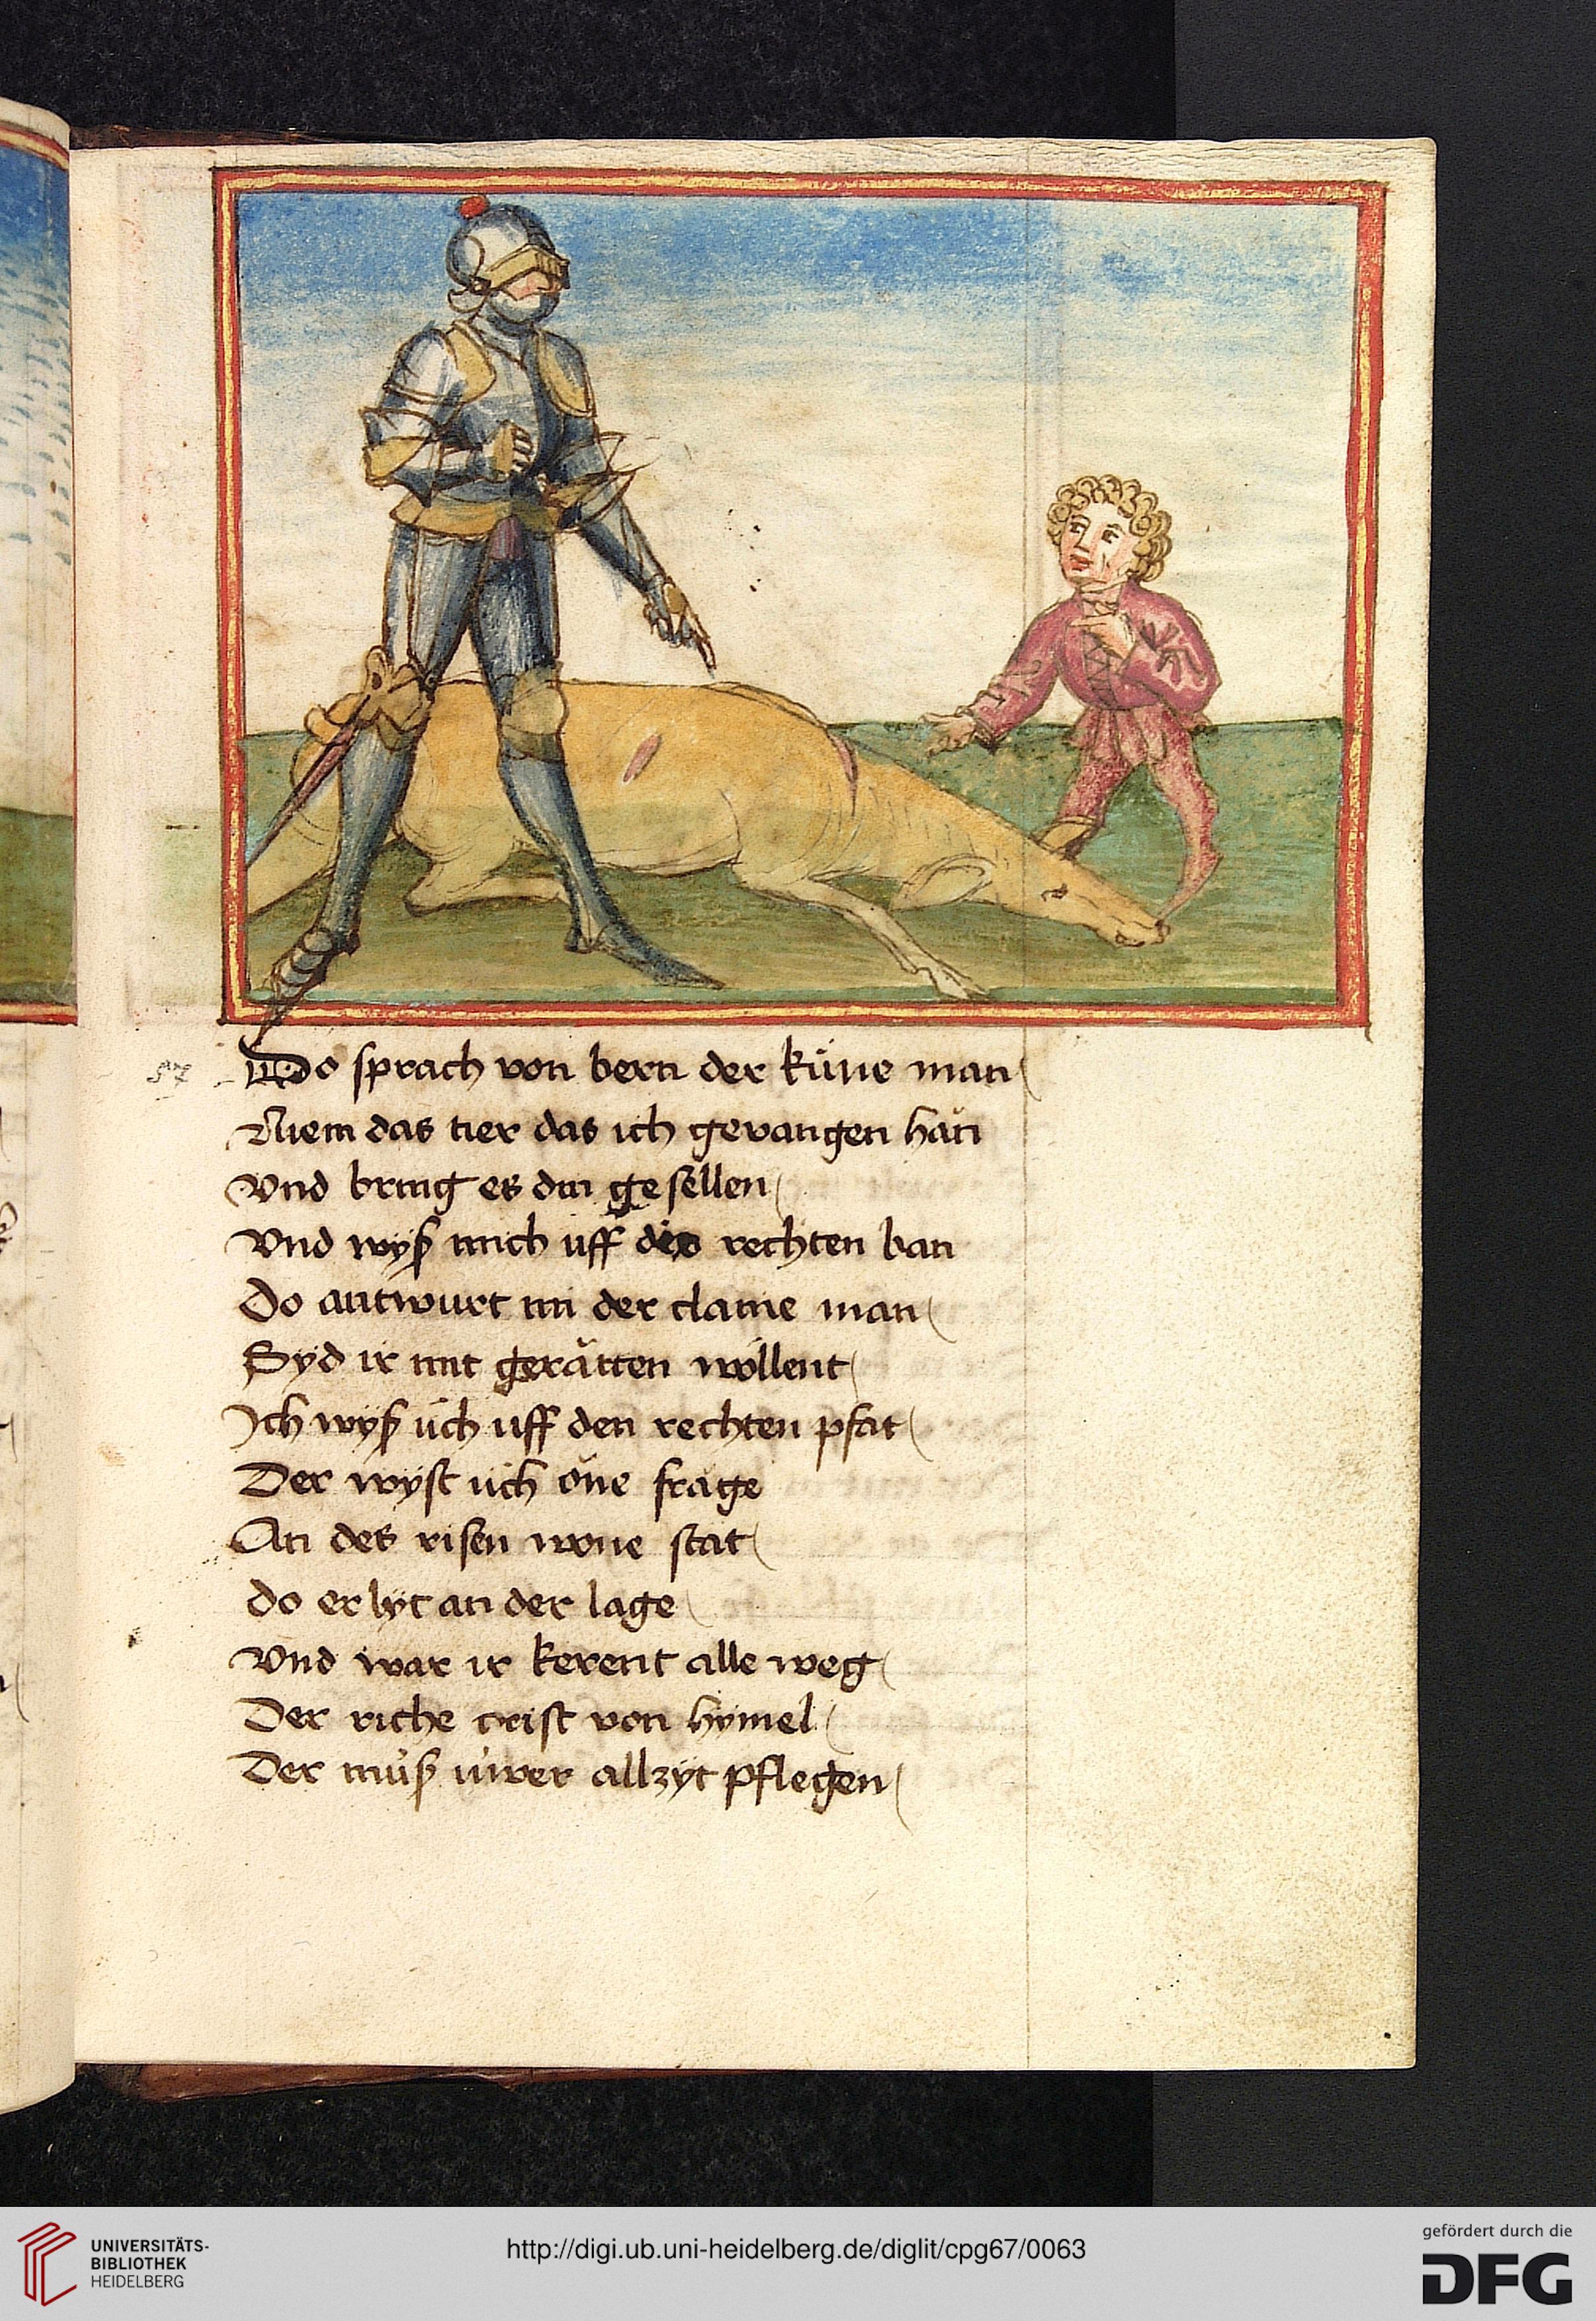 57
Do sprach von bern der küne man
Niem das tier das ich gevangen hän
Vnd bring es din gesellen
Vnd wyß mich uff die rechten ban
Do antwurt im der claine man
Syd ir mit gerätten wöllent
Ich wyß üch uff den rechten pfat
Der wyst üch öne fräge
An des risen wone stat
do er lyt an der lage
Vnd war ir kerent alle weg
Der riche crist von hymel
Der müß üwer allzyt pflegen
UNIVERSITÄTS-
BIBLIOTHEK
HEIDELBERG
http://digi.ub.uni-heidelberg.de/diglit/cpg67/0063
gefördert durch die
DFG